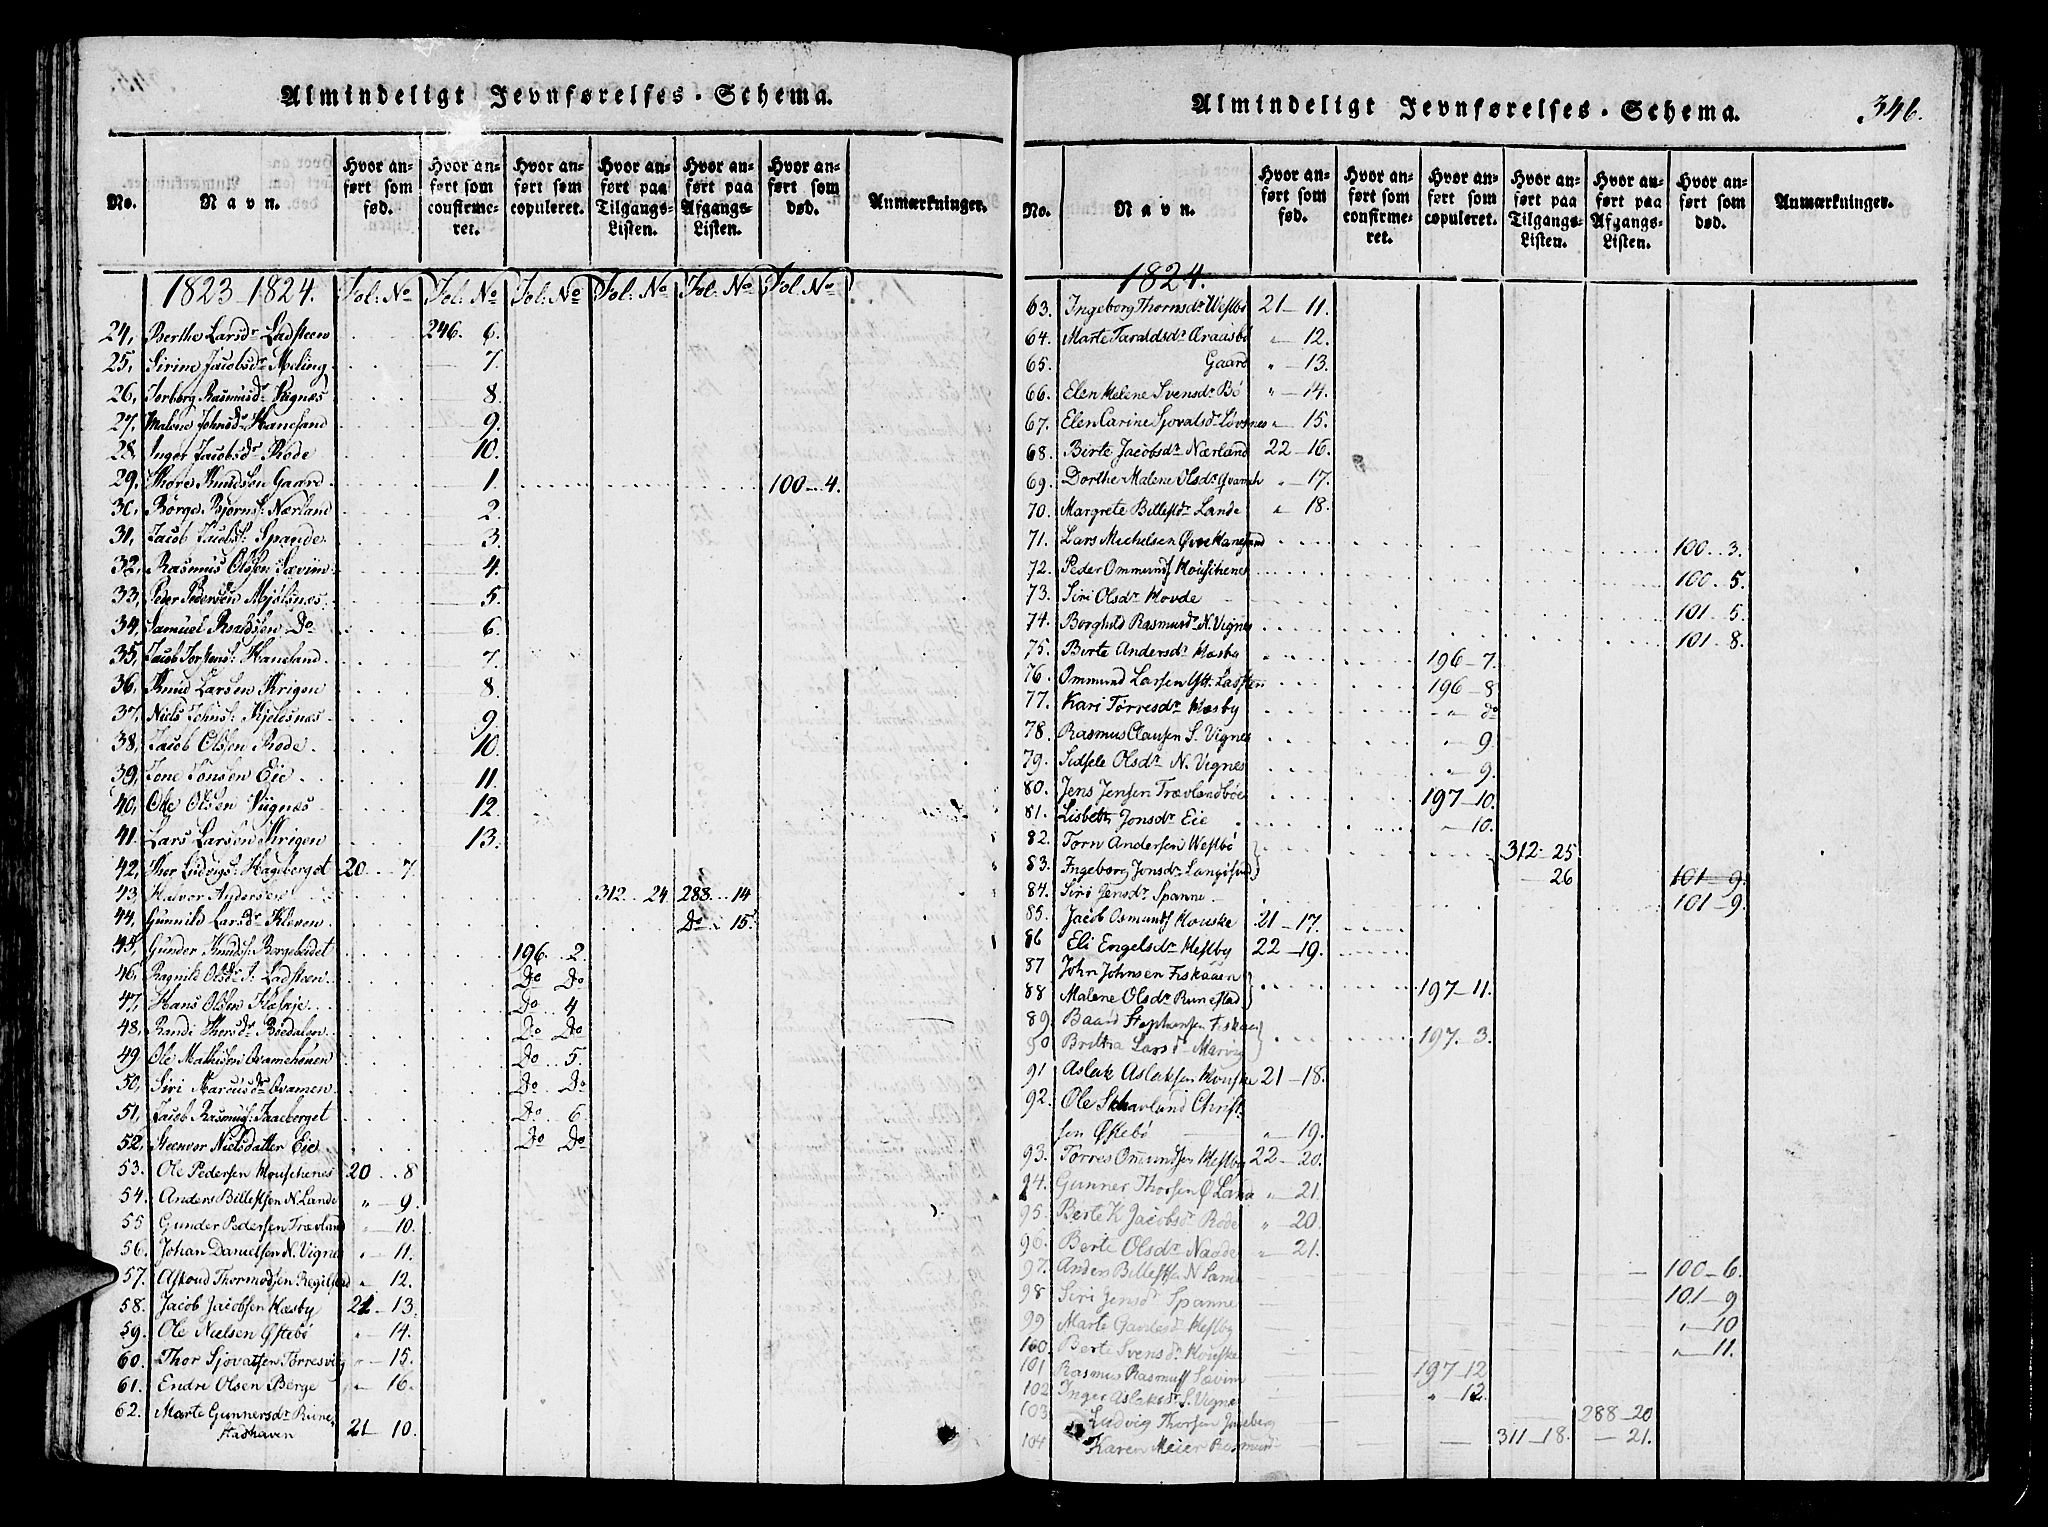 Almindeligt Jevnførelses-Schema.
No. Navn. Hvor anført som fød. Hvor anført som confirmeret. Hvor anført som copuleret. Hvor anført paa Tilgangs-Listen. Hvor anført paa Afgangs-Listen. Hvor anført som død. Anmærkninger.
1823 1824. Fol. No Fol. No Fol. No Fol. No Fol. No Fol. No
24, Berthe Larsdr Ladsteen 246. 6.
25, Sirine Jacobsdr Meling 7.
26, Torborg Rasmusdr Vignæs 8.
27, Malene Johnsdr Haneland 9.
28, Inger Jacobsdr Rode 10.
29, Thore Knudsen Gaard 1. 100 4.
30, Børge Bjørns. Nærland 2.
31, Jacob Jacobs. Spande 3.
32, Rasmus Olsen Sævim 4.
33, Peder Pedersen Mjølsnæs 5.
34, Samuel Roaldsen Do 6.
35, Jacob Torstens. Haneland 7.
36, Knud Larsen Krigen 8.
37, Niels Johns. Kjelesnæs 9.
38, Jacob Olsen Rode 10.
39, Tone Tonsen Eie 11.
40, Ole Olsen Viignæs 12.
41. Lars Larsen Krigen 13.
42, Ther Ludvigs. Hageberget 20 7.
43, Halvor Andersen 312 24 288 14
44, Gunnild Larsdr Kleven Do 15.
45, Gunder Knuds. Borgebeidet 196 2.
46, Ragnild Olsdr I. Ladsteen Do Do
47, Hans Olsen Do 4
48, Randi Thorsdr Boedalen Do Do
49 Ole Mathisen Qvamehouen Do 5.
50, Siri Marcusdr Qvamen Do Do
51, Jacob Rasmus. Haaeberget Do 6.
52, Steenvor Nielsdatter Eie Do Do
53. Ole Pedersen Houschenes 20 8
54. Anders Billestsen N. Lande " 9.
55 Gunder Pedersen Trævland " 10.
56. Johan Danielsen N. Vigne " 11.
57. Askoud Thormodsen Regilstad " 12.
58. Jacob Jacobsen Hæsby 21 13.
59. Ole Nielsen Østebø " 14.
60. Thor Sjovatsen Tørresvig " 15.
61. Endre Olsen Berge " 16.
62. Marte Gunnersdr Rune-
stadhaven 21 10.
Almindeligt Jevnførelses-Schema. 346.
No. Navn. Hvor anført som fød. Hvor anført som confirmeret. Hvor anført som copuleret. Hvor anført paa Tilgangs-Listen. Hvor anført paa Afgangs-Listen. Hvor anført som død. Anmærkninger.
1824.
63. Ingeborg Thornsdr Westbø 21 11.
64. Marte Taraldsdr Araaisbø " 12.
65. Gaard " 13.
66. Elen Helene Svensdr Bø " 14.
67. Elen Carine Sjovatsdr Løvsnes " 15.
68. Birte Jacobsdr Nærland 22 16.
69. Dorthe Malene Olsdr Qvameh " 17.
70. Margrete Billestdr Lande " 18.
71. Lars Michelsen Øvre Haneland 100 3.
72. Peder Ommunds Houschenes 100 5.
73. Siri Olsdr Hovde 101 5.
74. Borghild Rasmusdr N. Vignes 101 8.
75. Birte Andersdr Hæsby 196 7.
76. Ommund Larsen Ytt. Lassten 196 8
77. Kari Tørresdr Hæsby " do
78. Rasmus Clausen S. Vignes " 9.
79. Sidsele Olsdr N. Vignes " 9.
80. Jens Jensen Trævlandbøe 197 10.
81. Lisbeth Jonsdr Eie " 10.
82. Torn Andersen Westbø 312 25
83. Ingeborg Jonsdr Langøsund 26 101 9.
84. Siri Jensdr Spanne 101 9.
85. Jacob Osmunds Houske 21 17.
86 Eli Engelsdr Hestby 22 19.
87 John Johnsen Fiskaaen
88 Malene Olsdr Runestad 197 11.
89. Baard Stephensen Fiskaaen
90 Britha Larsdr Marvig 197. 3.
91 Aslak Aslaksen Houske 21 18.
92. Ole Skhavlund Christ-
sen Østebø " 19.
93. Tørres Omundsen Hestby 22 20.
94. Gunner Thorsen Ø Landa " 21.
95. Berte K Jacobsdr Rode " 20.
96. Berte Olsdr Naade " 21.
97. Anders Billestsen N Lande 100 6.
98 Siri Jensdr Spanne 101 9
99 Marte Gardesdr Hestby " 10
100. Berte Svensdr Houske " 11.
101 Rasmus Rasmuss Sævim 197 12
102 Inger Aslaksdr S. Vignes " 12.
103 Ludvig Thorsen 288 20
104 Karen Meier Rasmusd 311 18. 21.